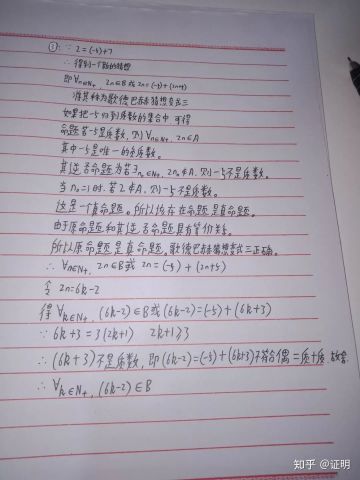 ①:∵ 2=(-5)+7
∴得到一个新的猜想
即∀n∈N₊, 2n∈B或2n=(-5)+(2n+5)
准其称为歌德巴赫猜想变式三
如果把-5归到质数的集合中,可得
命题若-5是质数,则∀n∈N₊, 2n∈A
其中-5是唯一的负质数。
其逆否命题为若∃n₀∈N₊, 2n₀∉A,则-5不是质数。
当n₀=1时,若2∉A,则-5不是质数。
这是一个真命题。所以该存在命题是真命题。
由于原命题和其逆否命题具有等价关系。
所以原命题是真命题。歌德巴赫猜想变式三正确。
∴∀n∈N₊, 2n∈B或2n=(-5)+(2n+5)
令2n=6k-2
得∀k∈N₊, (6k-2)∈B或(6k-2)=(-5)+(6k+3)
∵6k+3=3(2k+1) 2k+1≥3
∴(6k+3)不是质数,即(6k-2)=(-5)+(6k+3)不符合偶=质+质,故舍
∴∀k∈N₊, (6k-2)∈B
知乎 @证明